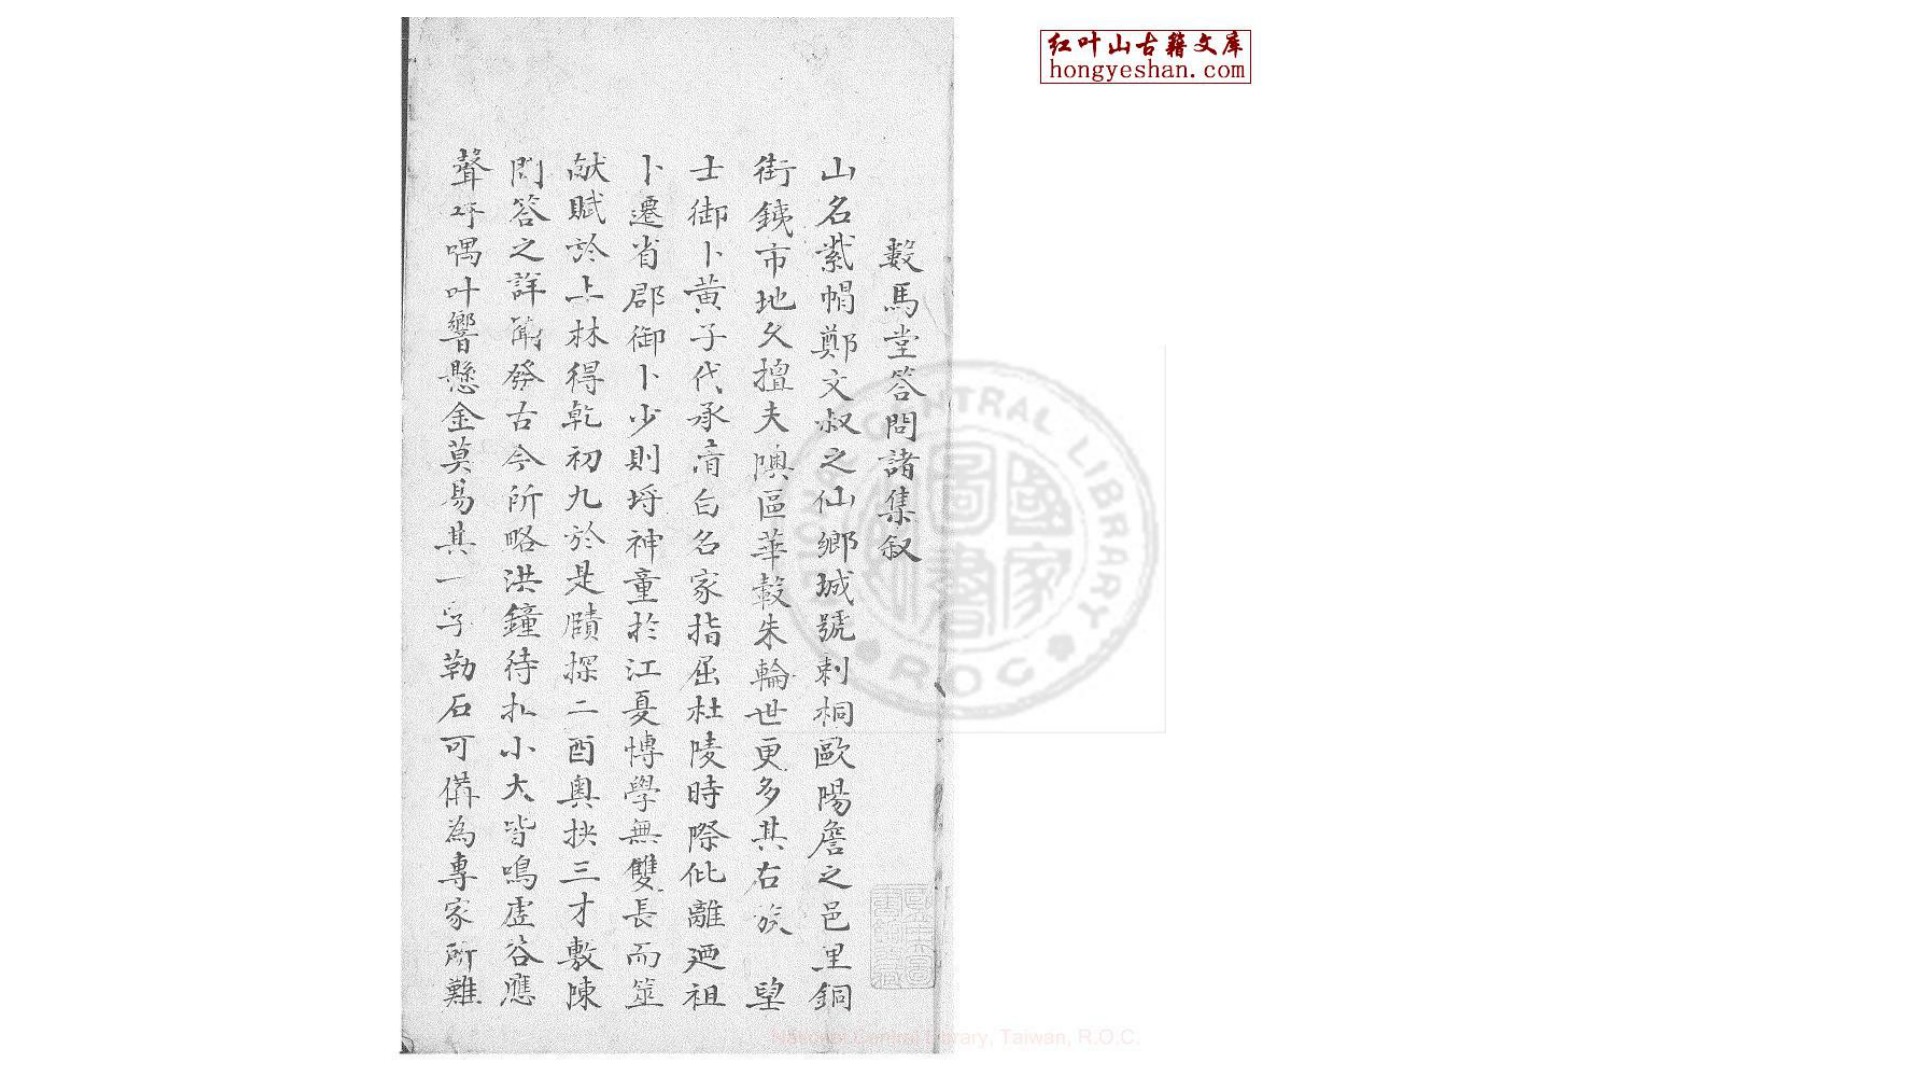 數馬堂答問諸集叙
山名紫帽鄭文叔之仙鄉城號刺桐歐陽詹之邑里銅
街鐵市地久擅夫隩區華轂朱輪世更多其右族 望
士御卜黃子代承清白名家指屈杜陵時際仳離廼祖
卜遷省郡御卜少則埒神童於江夏博學無雙長而筮
献賦於上林得乾初九於是賾探二酉奥抉三才敷陳
問答之詳闡發古今所略洪鐘待扣小大皆鳴虛谷應
聲吁喁叶響懸金莫易其一字勒石可備為專家所難
红叶山古籍文库
hongyeshan.com
NATIONAL CENTRAL LIBRARY
R.O.C
國家圖書
National Central Library, Taiwan, R.O.C.